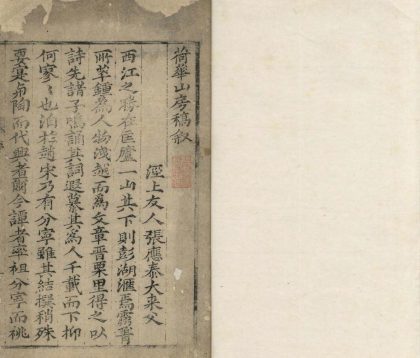 荷華山房稿叙
涇上友人張應泰大来父
西江之勝在匡廬一山其下則彭湖滙焉霧膏
所萃鍾為人物淺越而為文章晋栗里得之以
詩先諸子鳴誦其詞遐慕其為人千載而下抑
何寥々也洎於趙宋乃有分寧雖其結撰稍殊
要足弟陶而代興者爾今譚者率祖分寧而祧